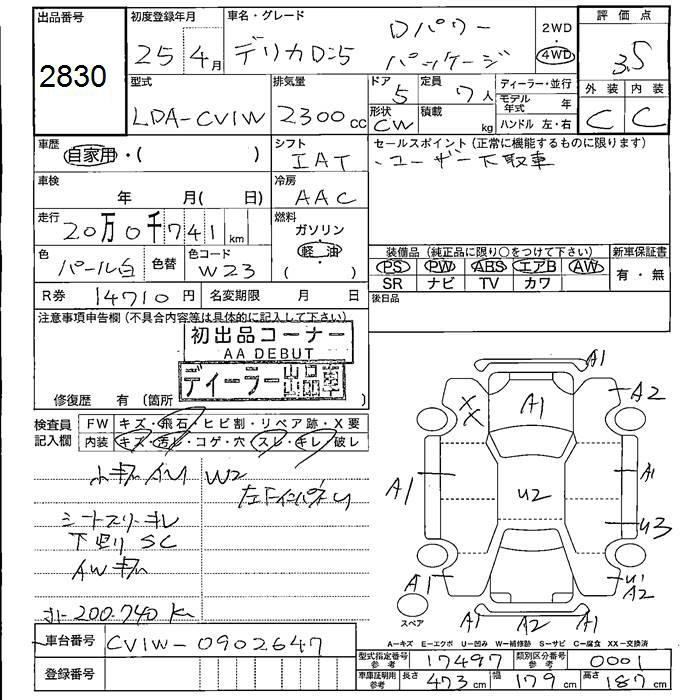 出品番号
2830
初度登録年月
25 4月
車名・グレード
デリカD:5
Dパワー
パッケージ
2WD
・
4WD
評価点
3.5
外装 内装
C C
型式
LDA-CV1W
排気量
2300cc
ドア
5
定員
7人
形状
CW
積載
kg
ディーラー・並行
モデル年式 年
ハンドル 左・右
車歴
自家用・( )
シフト
IAT
セールスポイント(正常に機能するものに限ります)
、ユーザー下取車
車検
年 月( 日)
冷房
AAC
走行
20万0千741km
燃料
ガソリン
軽油
( )
色
パール白
色替
色コード
W23
装備品(純正品に限り○をつけて下さい)
新車保証書
PS PW ABS エアB AW
SR ナビ TV カワ
有・無
R券 14710円
名変期限 月 日
後日品
注意事項申告欄(不具合内容等は具体的に記入して下さい)
初出品コーナー
AA DEBUT
ディーラー出品車
修復歴 有(箇所
検査員
記入欄
FW キズ・飛石・ヒビ割・リペア跡・X要
内装 キズ・汚レ・コゲ・穴・スレ・キレ・破レ
W2
シートスリキレ
下廻り SC
200.740 K
A1
XX
A1
A2
A1
U2
A1
U3
A1
U1
A2
A1 A2 A1
スペア
A-キズ E-エクボ U-凹み W-補修跡 S-サビ C-腐食 XX-交換済
車台番号
CV1W-0902647
登録番号
型式指定番号
参考
17497
類別区分番号
参考
0001
車庫証明用
参考
長さ 473cm 幅 179cm 高さ 187cm